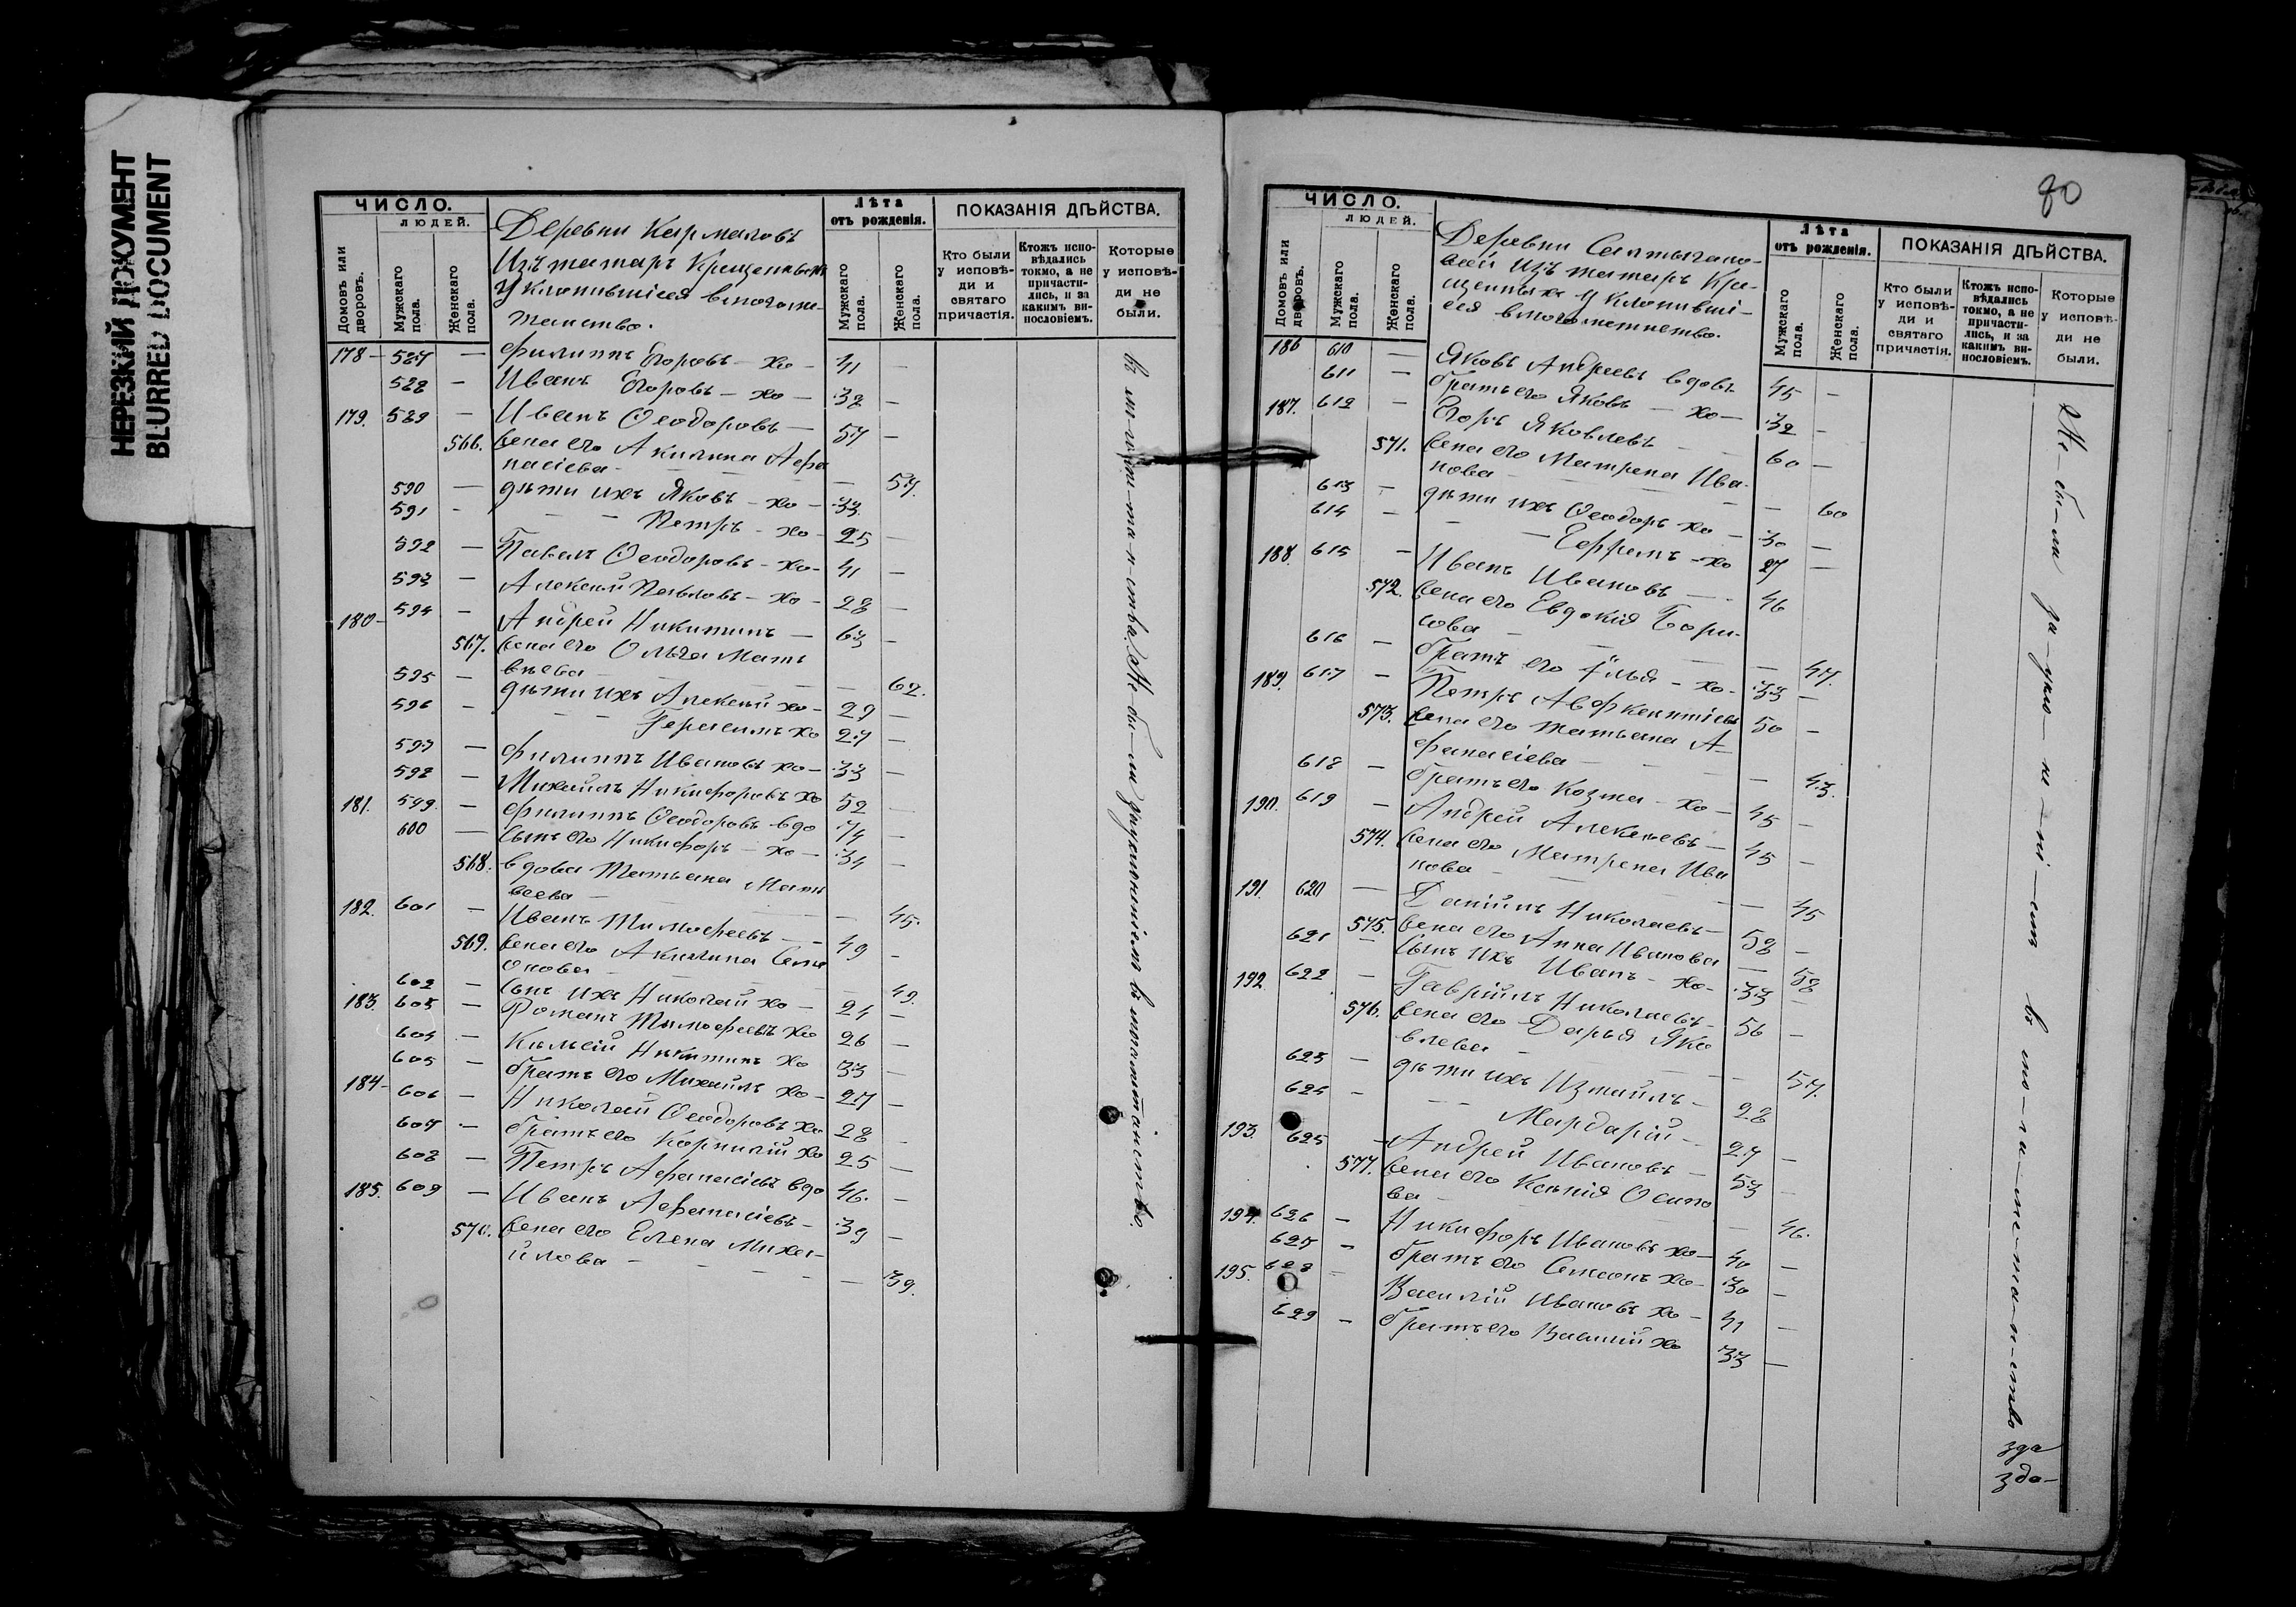 НЕРЕЗКИЙ ДОКУМЕНТ
BLURRED DOCUMENT
ЧИСЛО.
ЛЮДЕЙ.
Домовъ или дворовъ.
Мужскаго пола.
Женскаго пола.
Деревни Кармаловъ
Изъ татаръ Крещеныхъ
Уклонившіеся вмагоме-
танство.
Лѣта
отъ рожденія.
Мужскаго пола.
Женскаго пола.
ПОКАЗАНІЯ ДѢЙСТВА.
Кто были у исповѣ-ди и святаго причастія.
Ктожъ испо-вѣдались токмо, а не причасти-лись, и за какимъ ви-нословіемъ.
Которые у исповѣ-ди не были.
178 — 587 — Филиппъ Егоровъ — хо — 41 —
588 — Иванъ Егоровъ — хо — 38 —
179. 589 — Иванъ Ѳеодоровъ — 57 —
566. жена его Акилина Афа
насіева — — 57.
590 — дѣти ихъ Яковъ — хо — 33
591 — Петръ — хо — 25 —
592 — Павелъ Ѳеодоровъ — хо — 41 —
593 — Алексѣй Павловъ — хо — 28 —
180 — 594 — Андрей Никитинъ — 63 —
567. жена его Ольга Матъ
вѣева — — 62.
595 — дѣти ихъ Алексѣй хо — 29 —
596 — Герасимъ хо 27 —
597 — Филиппъ Ивановъ хо — 33 —
598 — Михаилъ Никифоровъ хо 52 —
181. 599. — Филиппъ Ѳеодоровъ вдо 74 —
600 — сынъ его Никифоръ — хо — 34 —
568. вдова Татьяна Мат
веева — — 45.
182. 601 — Иванъ Тимофеевъ — 49 —
569. жена его Акилина Сем
онова — — 49.
602 — сынъ ихъ Николай хо — 24 —
183. 603 — Романъ Тимофеевъ хо 26 —
604 — Никитинъ хо 33 —
605 — братъ его Михаилъ хо — 27 —
184 — 606 — Николай Ѳеодоровъ хо 28 —
607 — братъ его Корнилій хо 25 —
608 — Петръ Афанасіевъ вдо 46. —
185. 609 — Иванъ Афанасіевъ — 39 —
570. жена его Елена Миха-
йлова — — 39.
Не были за уклоненіемъ въ магометанство.
80
ЧИСЛО.
ЛЮДЕЙ.
Домовъ или дворовъ.
Мужскаго пола.
Женскаго пола.
Деревни Салтыгано-
вой изъ татаръ Кре-
щенныхъ Уклонивші-
еся вмагометанство.
Лѣта
отъ рожденія.
Мужскаго пола.
Женскаго пола.
ПОКАЗАНІЯ ДѢЙСТВА.
Кто были у исповѣ-ди и святаго причастія.
Ктожъ испо-вѣдались токмо, а не причасти-лись, и за какимъ ви-нословіемъ.
Которые у исповѣ-ди не были.
186 610 — Яковъ Андреевъ вдовъ 45 —
611 — братъ его Яковъ — хо — 32 —
187. 612 — Егоръ Яковлевъ — 60 —
571. жена его Матрена Ива-
нова — — 60
613 — дѣти ихъ Ѳеодоръ хо — 30 —
614 — Ефремъ — хо 27 —
188. 615 — Иванъ Ивановъ — 46
572. жена его Евдокія Бори-
сова — — 47.
616 — братъ его Илья — хо — 33 —
189. 617 — Петръ 50 —
573. жена его Татьана А-
фанасіева — — 43.
618 — братъ его Козма — хо — 45 —
190. 619 — Андрей Алексѣевъ — 45 —
574. жена его Матрена Ива
нова — — 45
191. 620 — Даніилъ Николаевъ — 58 —
575. жена его Анна Иванова — 58
621 — сынъ ихъ Иванъ — хо — 33 —
192 622 — Гавріилъ Николаевъ — 56 —
576. жена его Дарья Яко
влева — — 57.
623 — дѣти ихъ Измаилъ — 28
624 — Мардарій — 27 —
193. 625 — Андрей Ивановъ — 53 —
577. жена его Ксенія Осипо
ва — — 46.
194. 626 — Никифоръ Ивановъ хо — 40 —
627 — братъ его Семенъ хо — 30 —
195. 628 — Василій Ивановъ хо — 41 —
629 — братъ его Василій хо 33 —
Не — бы — ли за — укло — не — ні — емъ въ ма — го — ме — та — н — ство